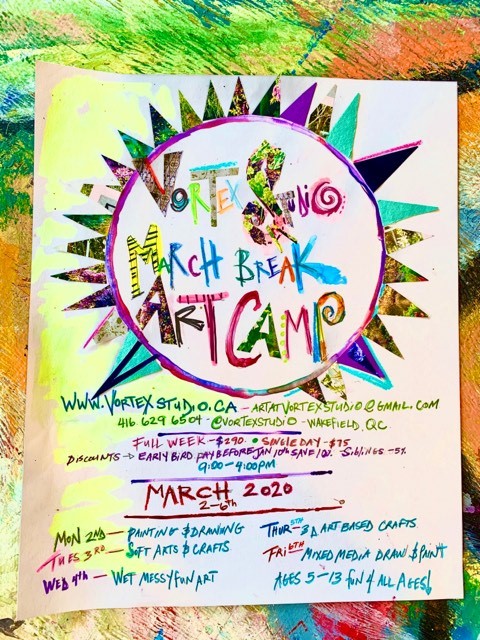 VORTEX STUDIO
MARCH BREAK
ART CAMP
WWW.VORTEXSTUDIO.CA - ARTATVORTEXSTUDIO@GMAIL.COM
416 629 6504 - @VORTEXSTUDIO - WAKEFIELD, QC
FULL WEEK - $290. • SINGLE DAY - $75
DISCOUNTS → EARLY BIRD PAY BEFORE JAN 10th SAVE 10%. SIBLINGS - 5%
9:00 - 4:00PM
MARCH 2020
2-6th
MON 2ND - PAINTING & DRAWING
TUES 3RD - SOFT ARTS & CRAFTS
WED 4th - WET MESSY FUN ART
THUR 5TH - 3D ART BASED CRAFTS
FRI 6TH MIXED MEDIA DRAW & PAINT
AGES 5-13 FUN 4 ALL AGES!